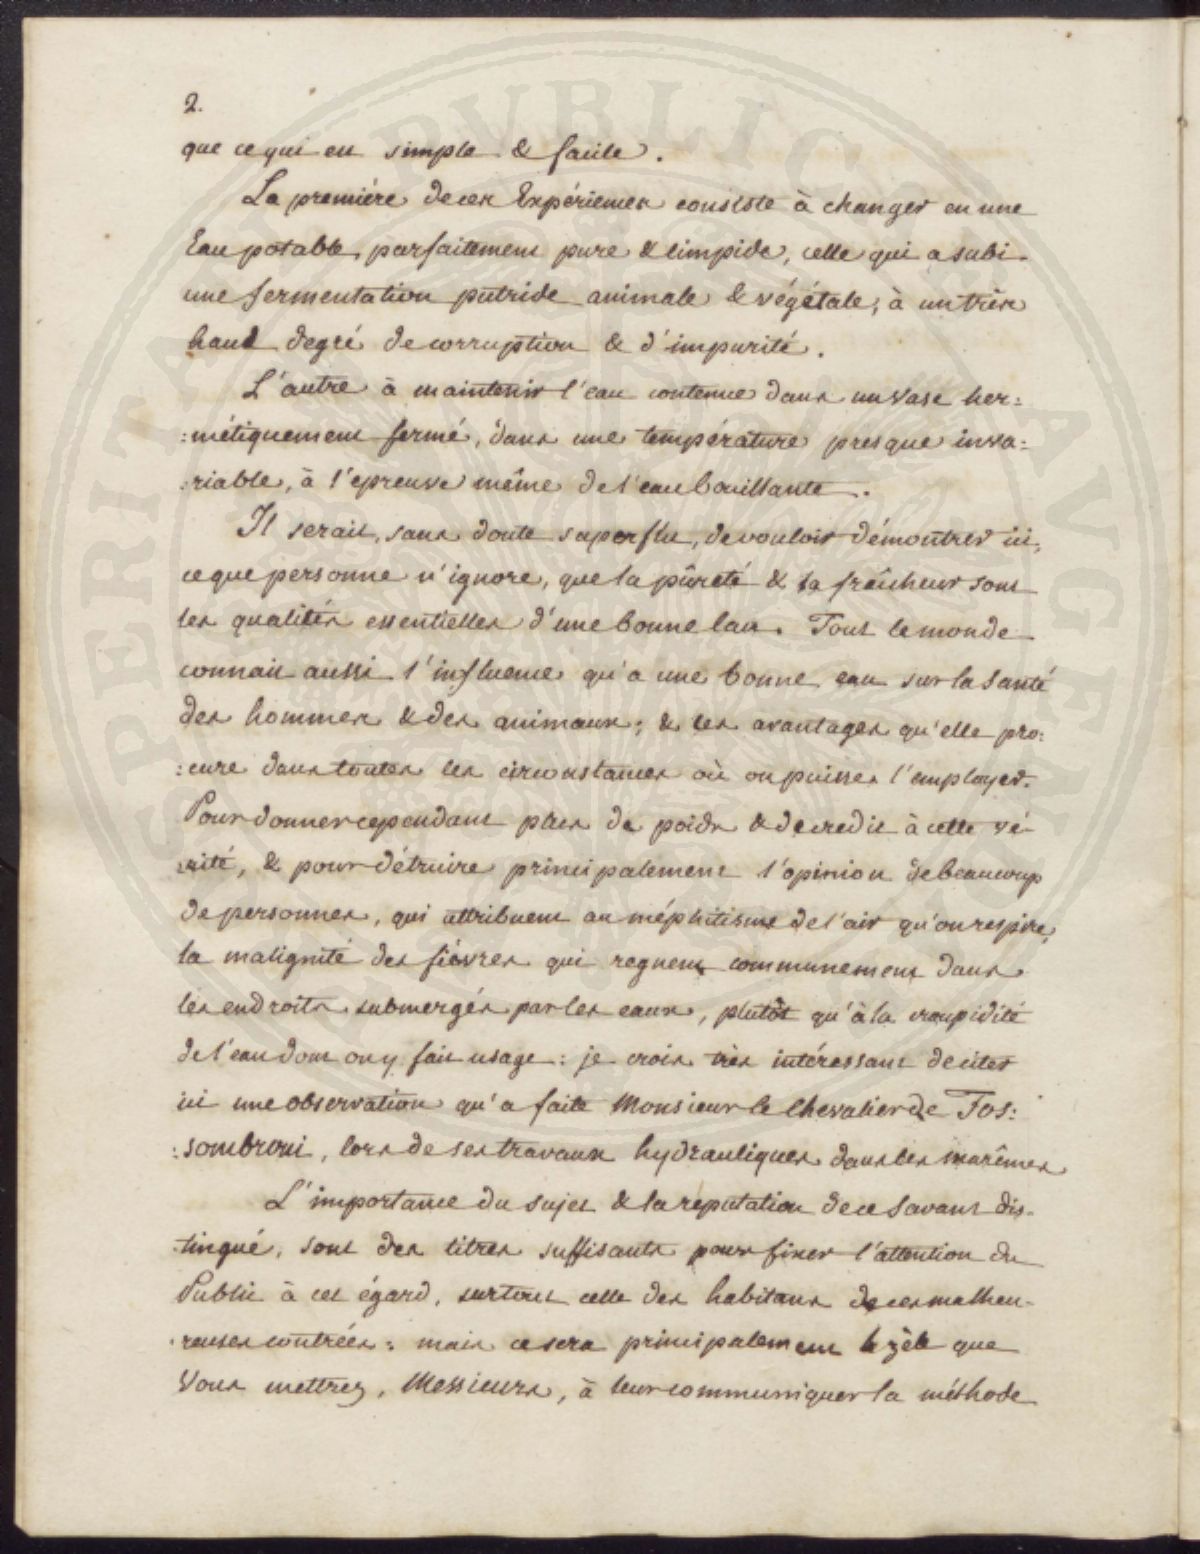 2.
que ce qui est simple & facile.
La première de ces Expériences consiste à changer en une
Eau potable, parfaitement pure & limpide, celle qui a subi
une fermentation putride animale & végétale, à un très
haut degré de corruption & d'impurité.
L'autre à maintenir l'eau contenue dans un vase her:
:métiquement fermé, dans une température presque inva:
:riable, à l'épreuve même de l'eau bouillante.
Il serait, sans doute superflu, de vouloir démontrer ici,
ce que personne n'ignore, que la pûreté & la fraîcheur sont
les qualités essentielles d'une bonne Eau. Tout le monde
connait aussi l'influence qu'a une bonne eau sur la Santé
des hommes & des animaux; & les avantages qu'elle pro:
:cure dans toutes les circonstances où on puisse l'employer.
Pour donner cependant plus de poids & de credit à cette vé-
:rité, & pour détruire principalement l'opinion de beaucoup
de personnes, qui attribuent au méphitisme de l'air qu'on respire,
la malignité des fiévres qui regnent communement dans
les endroits submergés par les eaux, plutôt qu'à la croupidité
de l'eau dont on y fait usage: je crois très intéressant de citer
ici une observation qu'a faite Monsieur le Chevalier de Fos:
:sombroni, lors de ses travaux hydrauliques dans les marêmes
L'importance du sujet & la reputation de ce Savant dis-
:tingué, sont des titres suffisants pour fixer l'attention du
Public à cet égard, surtout celle des habitans de ces malheu-
:reuses contrées: mais ce sera principalement le zèle que
Vous mettrez, Messieurs, à leur communiquer la méthode
SPERITAS PVBLICA AVGENDA